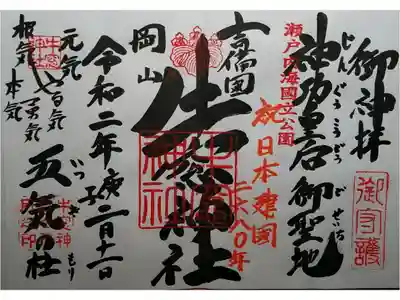 御神拝
じんぐうこうごうごせいち
神功皇后御聖地
御守護
瀬戸内海國立公園
祝日本建国
二六八〇年
吉備国
牛窓神社
岡山
令和二年庚子二月十一日
元気
やる気
勇気
根気
本気
いつきもり
五気の杜